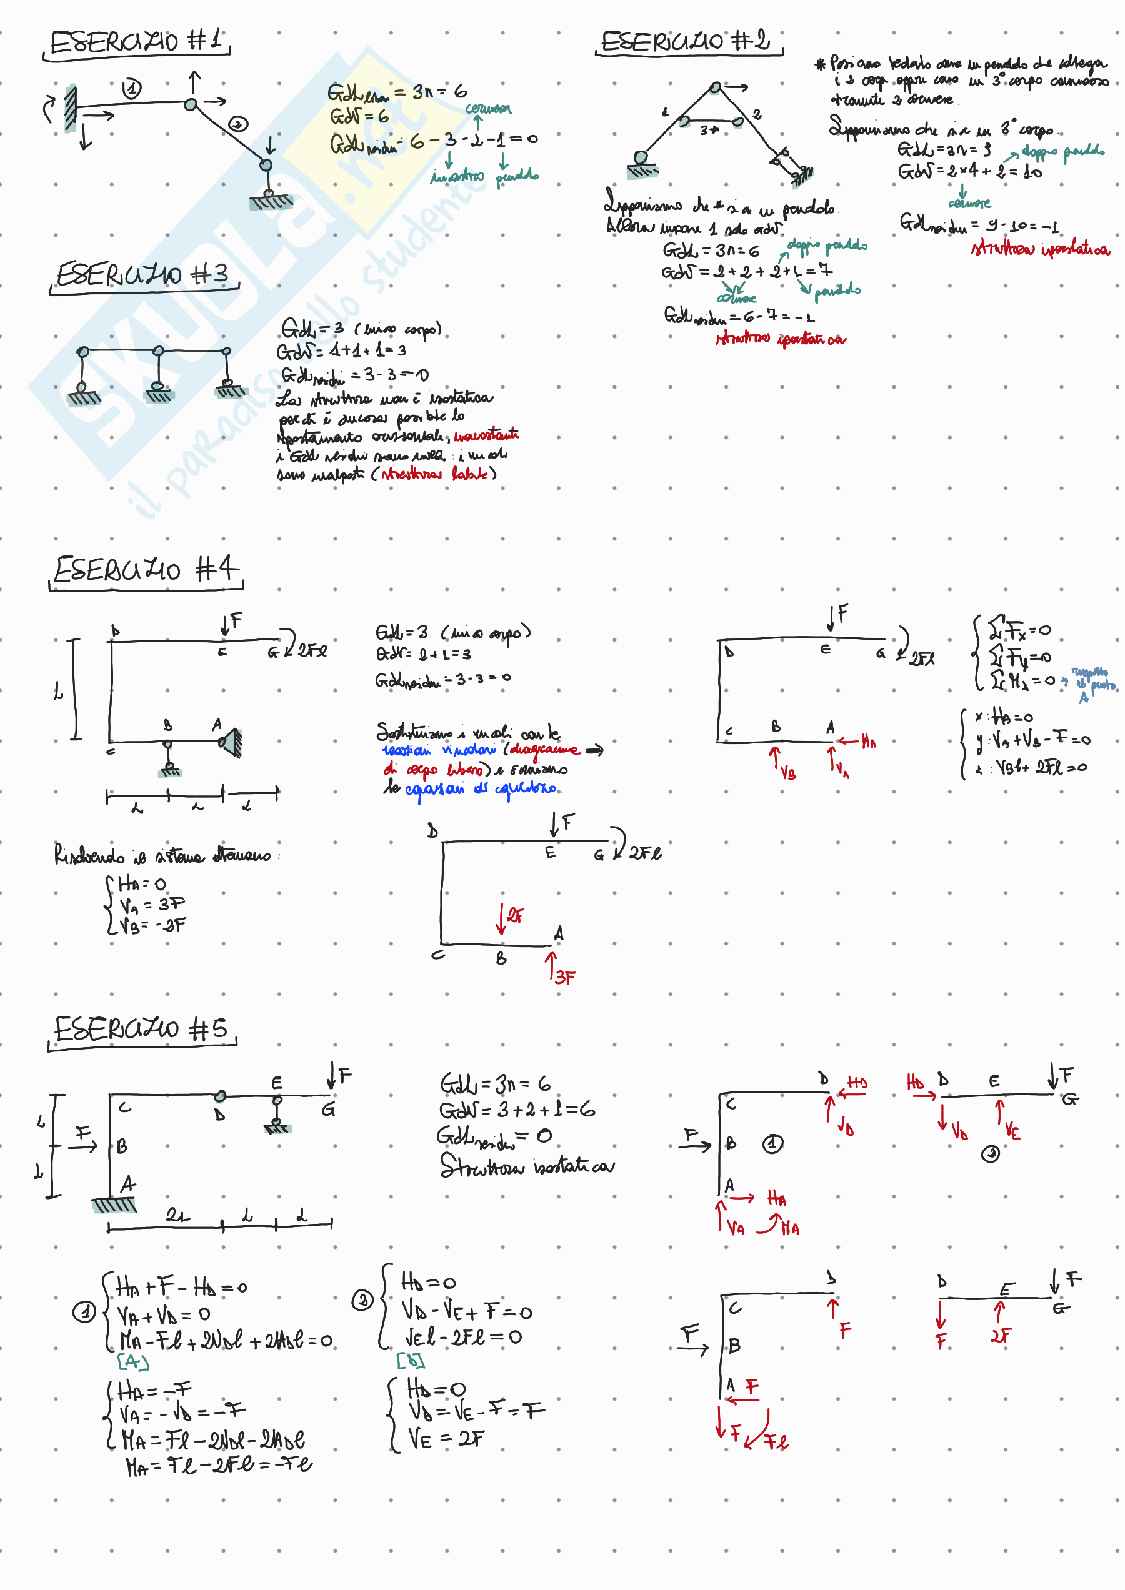 ESERCIZIO #1
1
2
Gdl = 3n = 6
GdV = 6
cerniera
Gdl residui = 6 - 3 - 2 - 1 = 0
incastro pendolo
ESERCIZIO #2
1
2
3*
* Possiamo vederlo come un pendolo che collega
i 2 corpi oppure come un 3° corpo connesso
tramite 2 cerniere.
Supponiamo che * sia un pendolo.
Allora impone 1 solo GdV.
Gdl = 3n = 6
doppio pendolo
GdV = 2 + 2 + 2 + 1 = 7
cerniere pendolo
Gdl residui = 6 - 7 = -1
struttura iperstatica
Supponiamo che sia un 3° corpo
Gdl = 3n = 9
doppio pendolo
GdV = 2*4 + 2 = 10
cerniere
Gdl residui = 9 - 10 = -1
struttura iperstatica
ESERCIZIO #3
Gdl = 3 (unico corpo)
GdV = 1 + 1 + 1 = 3
Gdl residui = 3 - 3 = 0
La struttura non è isostatica
perché è ancora possibile lo
spostamento orizzontale, nonostante
i Gdl residui siano nulli: i vincoli
sono malposti (struttura labile)
SKUOLA.net
il paradiso dello studente
ESERCIZIO #4
D
F
E
G
2Fl
L
B
A
C
L L L
Gdl = 3 (unico corpo)
GdV = 2 + 1 = 3
Gdl residui = 3 - 3 = 0
Sostituiamo i vincoli con le
reazioni vincolari (diagramma
di corpo libero) e scriviamo
le equazioni di equilibrio.
F
D
E
G
2Fl
C
B
A
HA
VB
VA
ΣFx = 0
ΣFy = 0
ΣMz = 0
rispetto
al punto
A
x: HA = 0
y: VA + VB - F = 0
z: VBl + 2Fl = 0
Risolvendo il sistema otteniamo:
HA = 0
VA = 3F
VB = -2F
D
F
E
G
2Fl
2F
A
C
B
3F
ESERCIZIO #5
F
E
C
D
G
L
F
B
L
A
2L L L
Gdl = 3n = 6
GdV = 3 + 2 + 1 = 6
Gdl residui = 0
Struttura isostatica
D
HD
C
VD
F
B
1
A
HA
VA
MA
HD
D
E
F
G
VD
VE
2
1
HA + F - HD = 0
VA + VD = 0
MA - Fl + 2VDl + 2HDl = 0
[A]
HA = -F
VA = -VD = -F
MA = Fl - 2VDl - 2HDl
MA = Fl - 2Fl = -Fl
2
HD = 0
VD - VE + F = 0
VEl - 2Fl = 0
[D]
HD = 0
VD = VE - F = F
VE = 2F
D
C
F
F
B
A
F
F
Fl
D
E
F
G
F
2F